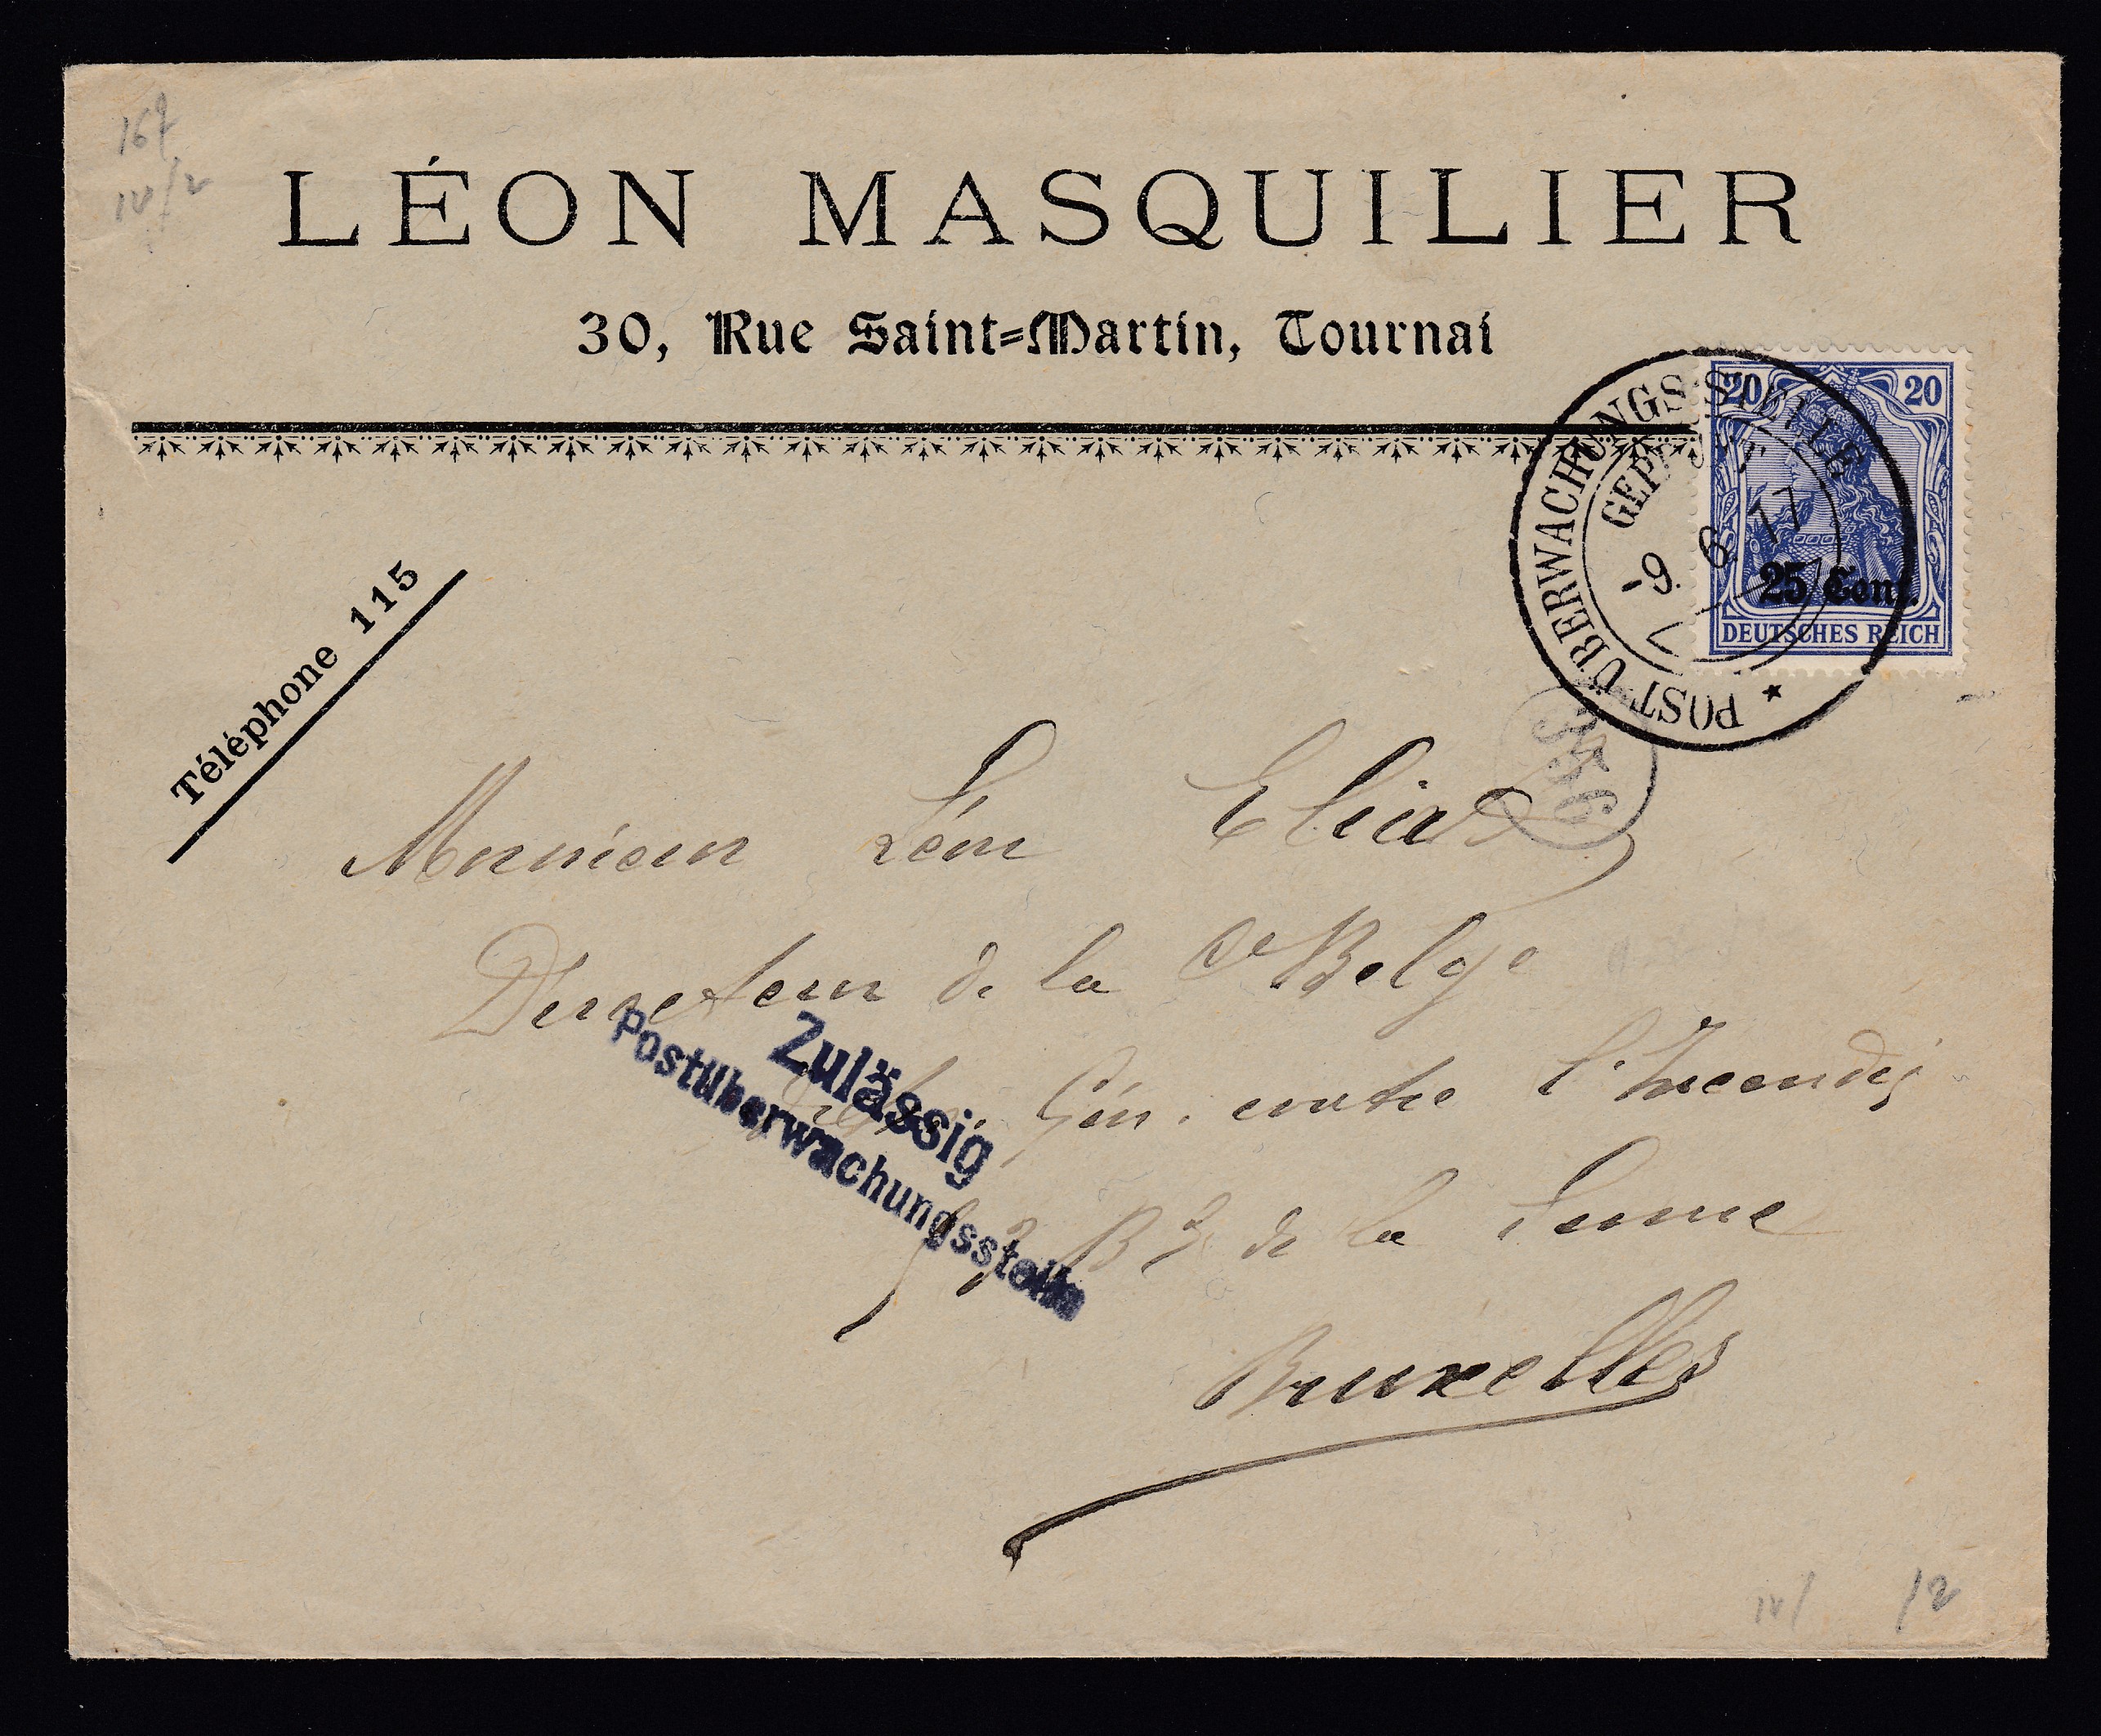 LÉON MASQUILIER
30, Rue Saint-Martin, Tournai
Téléphone 115
20 20
25 Cent.
DEUTSCHES REICH
POST-ÜBERWACHUNGS-STELLE
GEPRÜFT
-9. 6. 17
Monsieur Léon Eliat
Directeur de la Cie Belge
Gén. contre l'Incendie
de la Senne
Bruxelles
Zulässig
Postüberwachungsstelle
IV/2